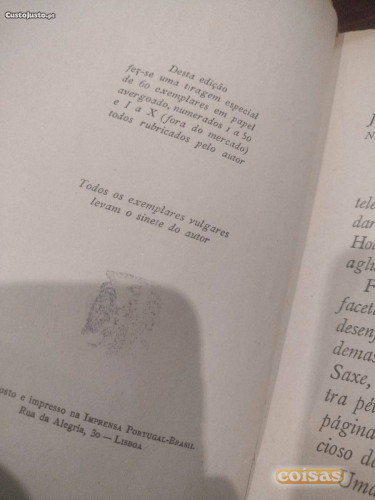 CustoJusto.pt
Desta edição
fez-se uma tiragem especial
de 60 exemplares em papel
avergoado, numerados 1 a 50
e I a X (fora do mercado)
todos rubricados pelo autor
Todos os exemplares vulgares
levam o sinete do autor
osto e impresso na IMPRENSA PORTUGAL-BRASIL
Rua da Alegria, 30 — LISBOA
J
N
tele
dar
Hol
aglu
F
facet
desen
demas
Saxe,
tra pé
página
cioso da
Uma
coisas